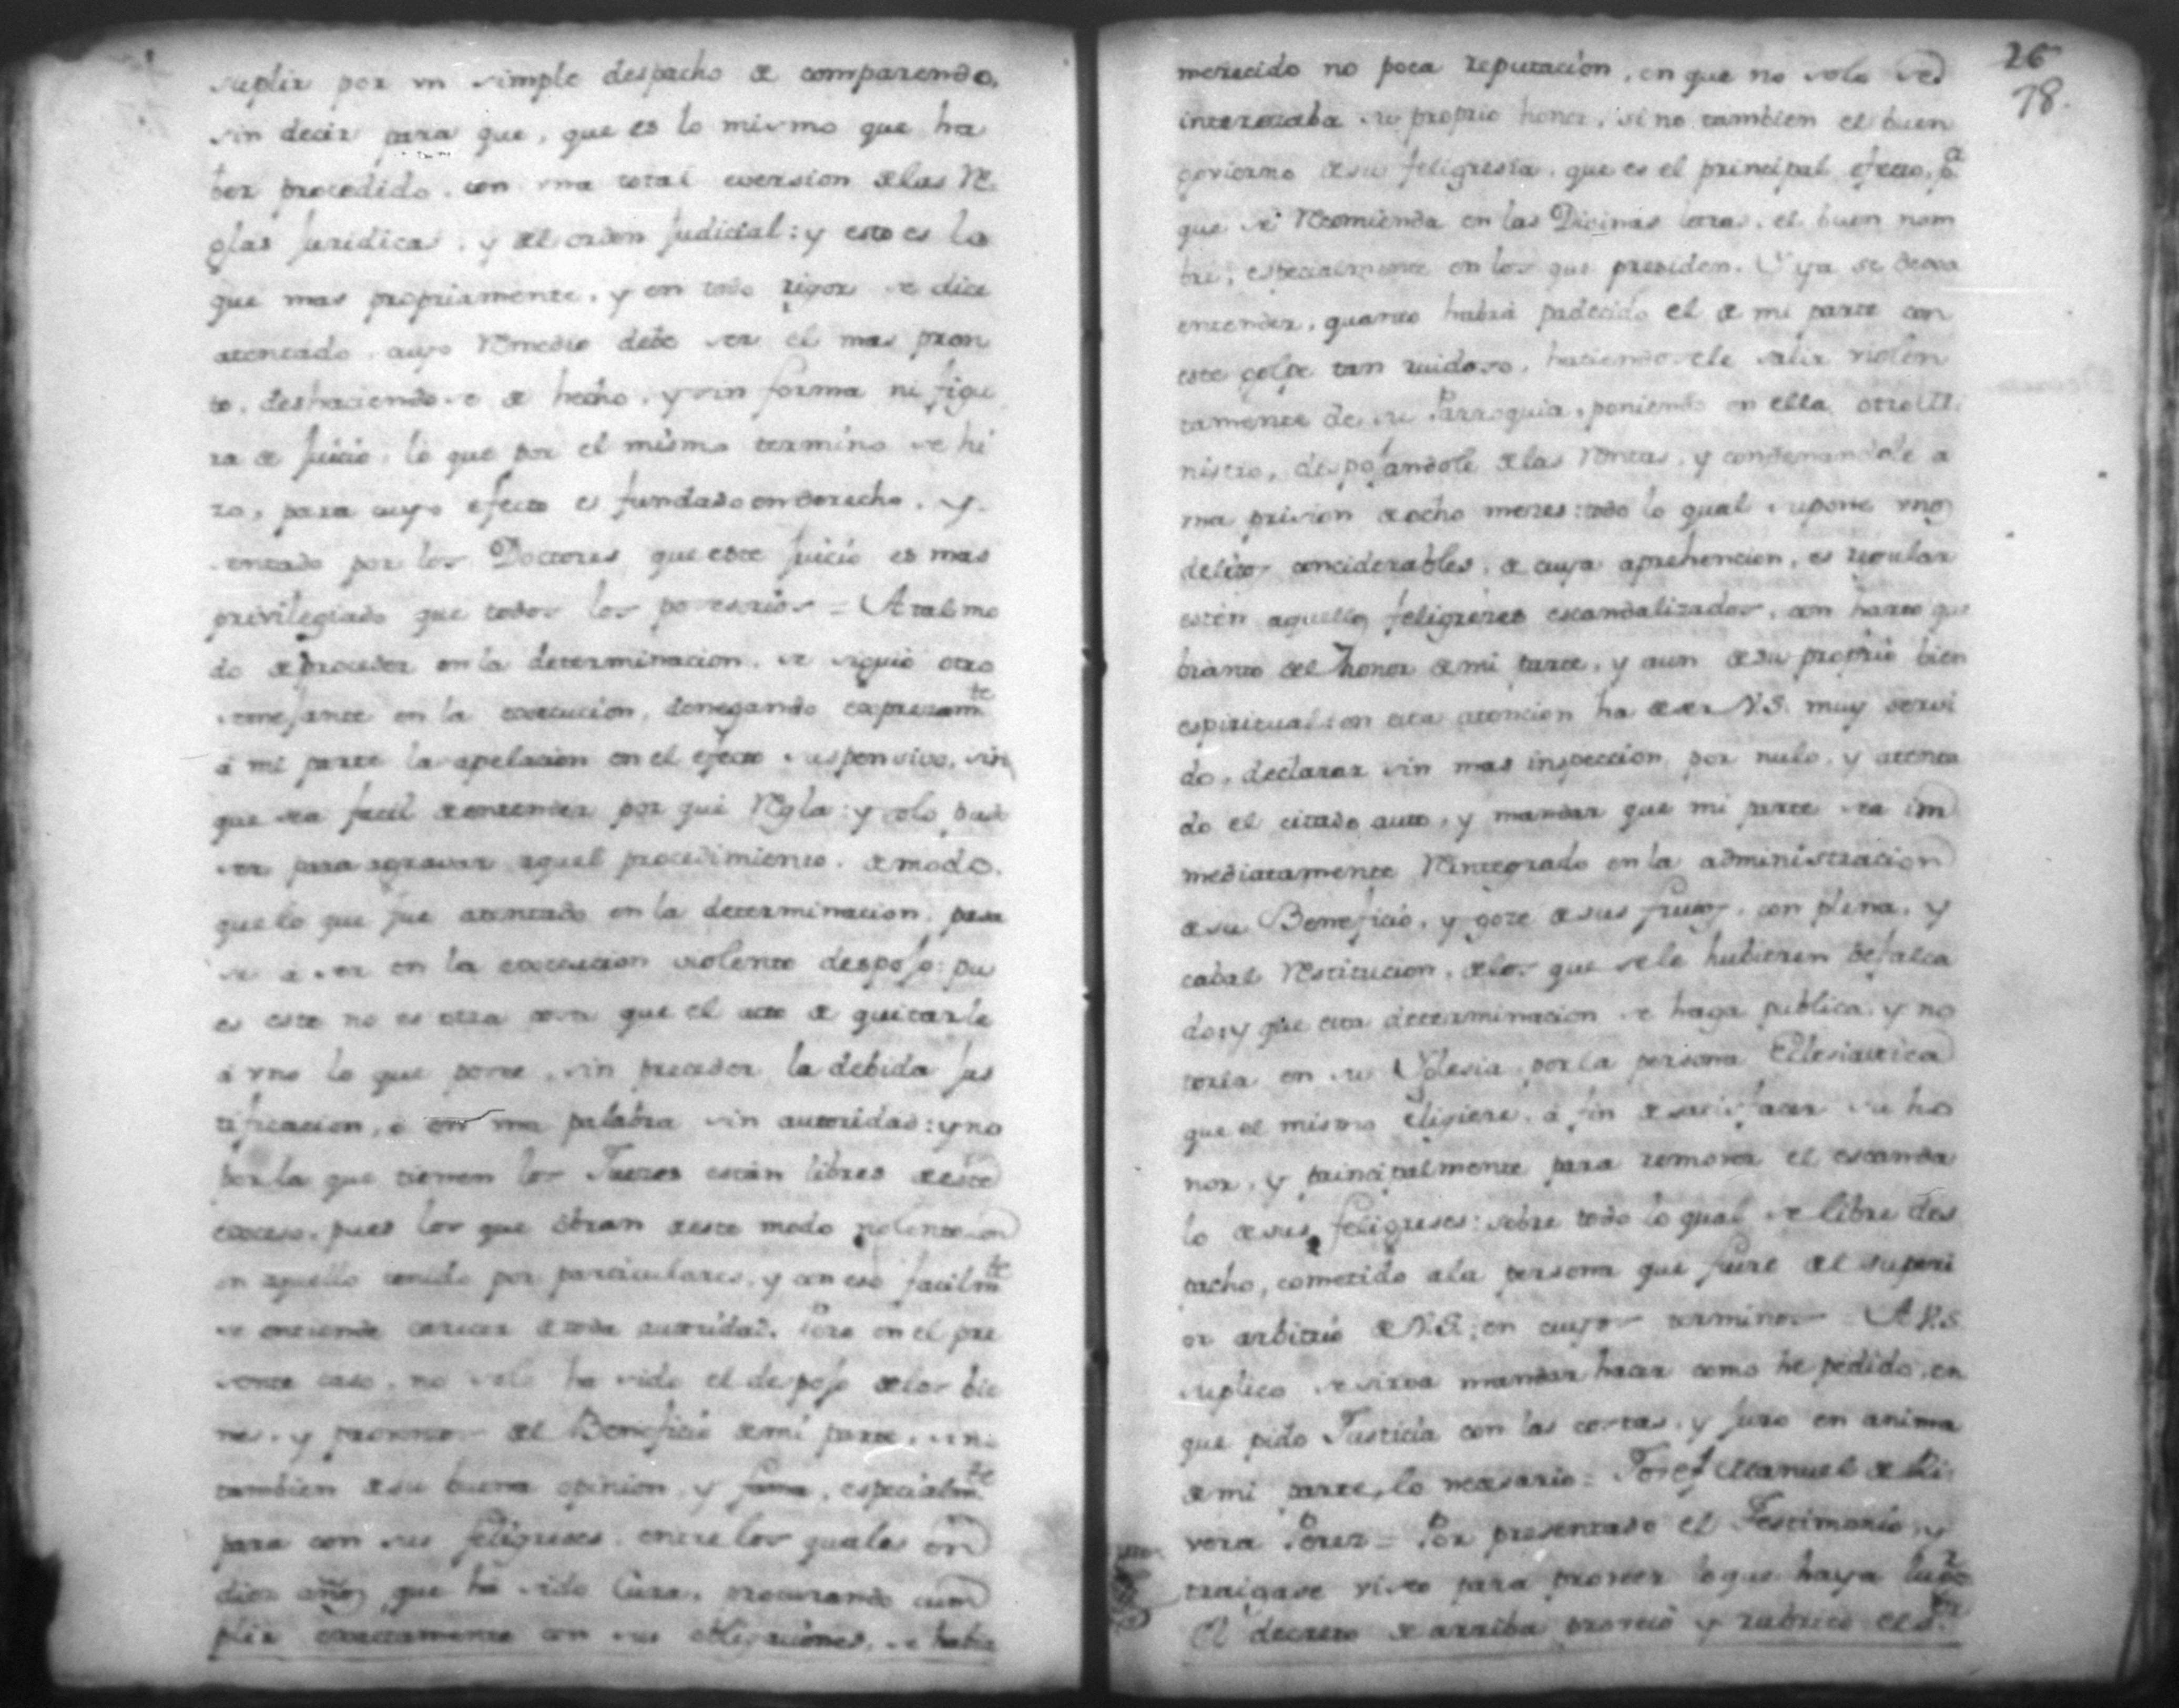 suplir por un simple despacho de comparendo,
sin decir para que, que es lo mismo que ha
ber procedido con una total eversion de las Re
glas Juridicas, y del orden Judicial: y esto es lo
que mas propriamente, y en todo rigor se dice
atentado, cuyo Remedio debe ser el mas pron
to, deshaciendose de hecho, y sin forma ni figu
ra de Juicio, lo que por el mismo termino se hi
zo, para cuyo efecto es fundado en derecho, y
sentado por los Doctores que este Juicio es mas
privilegiado que todos los posesorios = A tal mo
do de proceder en la determinacion, se siguió otro
semejante en la execucion, denegando expresam.te
á mi parte la apelacion en el efecto suspensivo, sin
que sea facil de entender por qué Regla: y solo pudo
ser para agravar aquel procedimiento, de modo
que lo que fue atentado en la determinacion, pasa
se á ser en la execucion violento despojo: pu
es este no es otra cosa que el acto de quitarle
á uno lo que posee, sin preceder la debida jus
tificacion, ó en una palabra sin autoridad: y no
por la que tienen los Jueces están libres de este
exceso, pues los que obran de este modo
en aquello tenidos por particulares, y con eso facilm.te
se entiende carecer de toda autoridad. Pero en el pre
sente caso, no solo ha sido el despojo de los bie
nes, y proventos del Beneficio de mi parte, sino
tambien de su buena opinion, y fama, especialm.te
para con sus feligreses, entre los quales en
diez años que há sido Cura, procurando cum
plir exactamente con sus obligaciones, se habia
26
78.
merecido no poca reputacion, en que no solo se
interezaba su proprio honor, sino tambien el buen
govierno de su feligresía, que es el principal efecto, p.a
que se Recomienda en las Divinas letras, el buen nom
bre, especialmente en los que presiden. Y ya se dexa
entender, quanto habrá padecido el de mi parte con
este golpe tan ruidoso, haciendosele salir violen
tamente de su Parroquia, poniendo en ella otro Mi
nistro, despojandole de las Rentas, y condenandole a
una prision de ocho meses: todo lo qual supone unos
delitos conciderables, de cuya aprehencion, es regular
estén aquellos feligreses escandalizados, con harto que
branto del honor de mi parte, y aun de su proprio bien
espiritual: en cuia atencion ha de ser V.S. muy servi
do, declarar sin mas inspeccion, por nulo, y atenta
do el citado auto, y mandar que mi parte sea im
mediatamente Reintegrado en la administracion
de su Beneficio, y goze de sus frutos, con plena, y
cabal Restitucion, de los que se le hubieren defalca
do: y que esta determinacion se haga publica, y no
toria en su Yglesia, por la persona Ecclesiastica
que el mismo eligiere, á fin de satisfacer su ho
nor, y principalmente para remover el escanda
lo de sus feligreses: sobre todo lo qual se libre des
pacho, cometido a la persona que fuere del superi
or arbitrio de V.S.; en cuyos terminos = A V.S.
suplico se sirva mandar hacer como he pedido, en
que pido Justicia con las costas, y juro en anima
de mi parte, lo necesario = Josef Manuel de Ri
vera Perez = Por presentado el Testimonio, y
traigase visto para proveer lo que haya lugar
El decreto de arriba proveió y rubricó el S.or